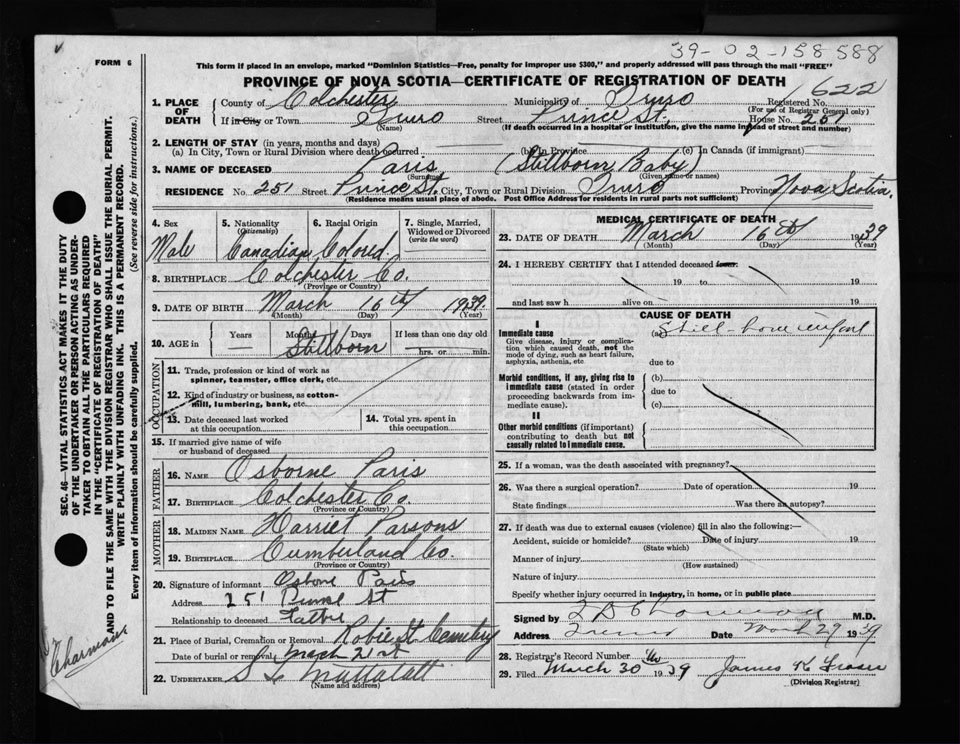 39-02-158588
FORM 6
This form if placed in an envelope, marked "Dominion Statistics—Free, penalty for improper use $300," and properly addressed will pass through the mail "FREE"
PROVINCE OF NOVA SCOTIA—CERTIFICATE OF REGISTRATION OF DEATH
622
SEC. 46—VITAL STATISTICS ACT MAKES IT THE DUTY
OF THE UNDERTAKER OR PERSON ACTING AS UNDER-
TAKER TO OBTAIN ALL THE PARTICULARS REQUIRED
IN THE "CERTIFICATE OF REGISTRATION OF DEATH"
AND TO FILE THE SAME WITH THE DIVISION REGISTRAR WHO SHALL ISSUE THE BURIAL PERMIT.
WRITE PLAINLY WITH UNFADING INK. THIS IS A PERMANENT RECORD.
Every item of information should be carefully supplied. (See reverse side for instructions.)
1. PLACE OF DEATH
County of Colchester Municipality of Truro Registered No.
(For use of Registrar General only)
If in City or Town Truro Street Prince St. House No. 251
(Name) (If death occurred in a hospital or institution, give the name instead of street and number)
2. LENGTH OF STAY (in years, months and days)
(a) In City, Town or Rural Division where death occurred (b) In Province (c) In Canada (if immigrant)
3. NAME OF DECEASED Paris (Stillborn Baby)
(Surname) (Given name or names)
RESIDENCE No. 251 Street Prince St. City, Town or Rural Division Truro Province Nova Scotia.
(Residence means usual place of abode. Post Office Address for residents in rural parts not sufficient)
4. Sex
Male
5. Nationality
(Citizenship)
Canadian
6. Racial Origin
Colored
7. Single, Married,
Widowed or Divorced
(write the word)
8. BIRTHPLACE Colchester Co.
(Province or Country)
9. DATE OF BIRTH March 16th 1939.
(Month) (Day) (Year)
10. AGE in Years Months Days If less than one day old
Stillborn hrs. or min.
OCCUPATION
11. Trade, profession or kind of work as
spinner, teamster, office clerk, etc.
12. Kind of industry or business, as cotton-
mill, lumbering, bank, etc.
13. Date deceased last worked
at this occupation
14. Total yrs. spent in
this occupation
15. If married give name of wife
or husband of deceased
FATHER
16. NAME Osborne Paris
17. BIRTHPLACE Colchester Co.
(Province or Country)
MOTHER
18. MAIDEN NAME Harriet Parsons
19. BIRTHPLACE Cumberland Co.
(Province or Country)
20. Signature of informant Osborne Paris
Address 251 Prince St
Relationship to deceased Father
21. Place of Burial, Cremation or Removal Robie St Cemetery
Date of burial or removal March 21st
22. UNDERTAKER
(Name and address)
MEDICAL CERTIFICATE OF DEATH
23. DATE OF DEATH March 16th 1939
(Month) (Day) (Year)
24. I HEREBY CERTIFY that I attended deceased from:
19 to 19
and last saw h alive on 19
CAUSE OF DEATH
I
Immediate cause
Give disease, injury or complica-
tion which caused death, not the
mode of dying, such as heart failure,
asphyxia, asthenia, etc.
(a) Still-born infant
due to
Morbid conditions, if any, giving rise to
immediate cause (stated in order
proceeding backwards from im-
mediate cause).
(b)
due to
(c)
II
Other morbid conditions (if important)
contributing to death but not
causally related to immediate cause.
25. If a woman, was the death associated with pregnancy?
26. Was there a surgical operation? Date of operation 19
State findings Was there an autopsy?
27. If death was due to external causes (violence) fill in also the following:—
Accident, suicide or homicide? Date of injury 19
(State which)
Manner of injury
(How sustained)
Nature of injury
Specify whether injury occurred in industry, in home, or in public place
Signed by M.D.
Address Truro Date March 29 1939
28. Registrar's Record Number
29. Filed March 30 1939 James K Fraser
(Division Registrar)